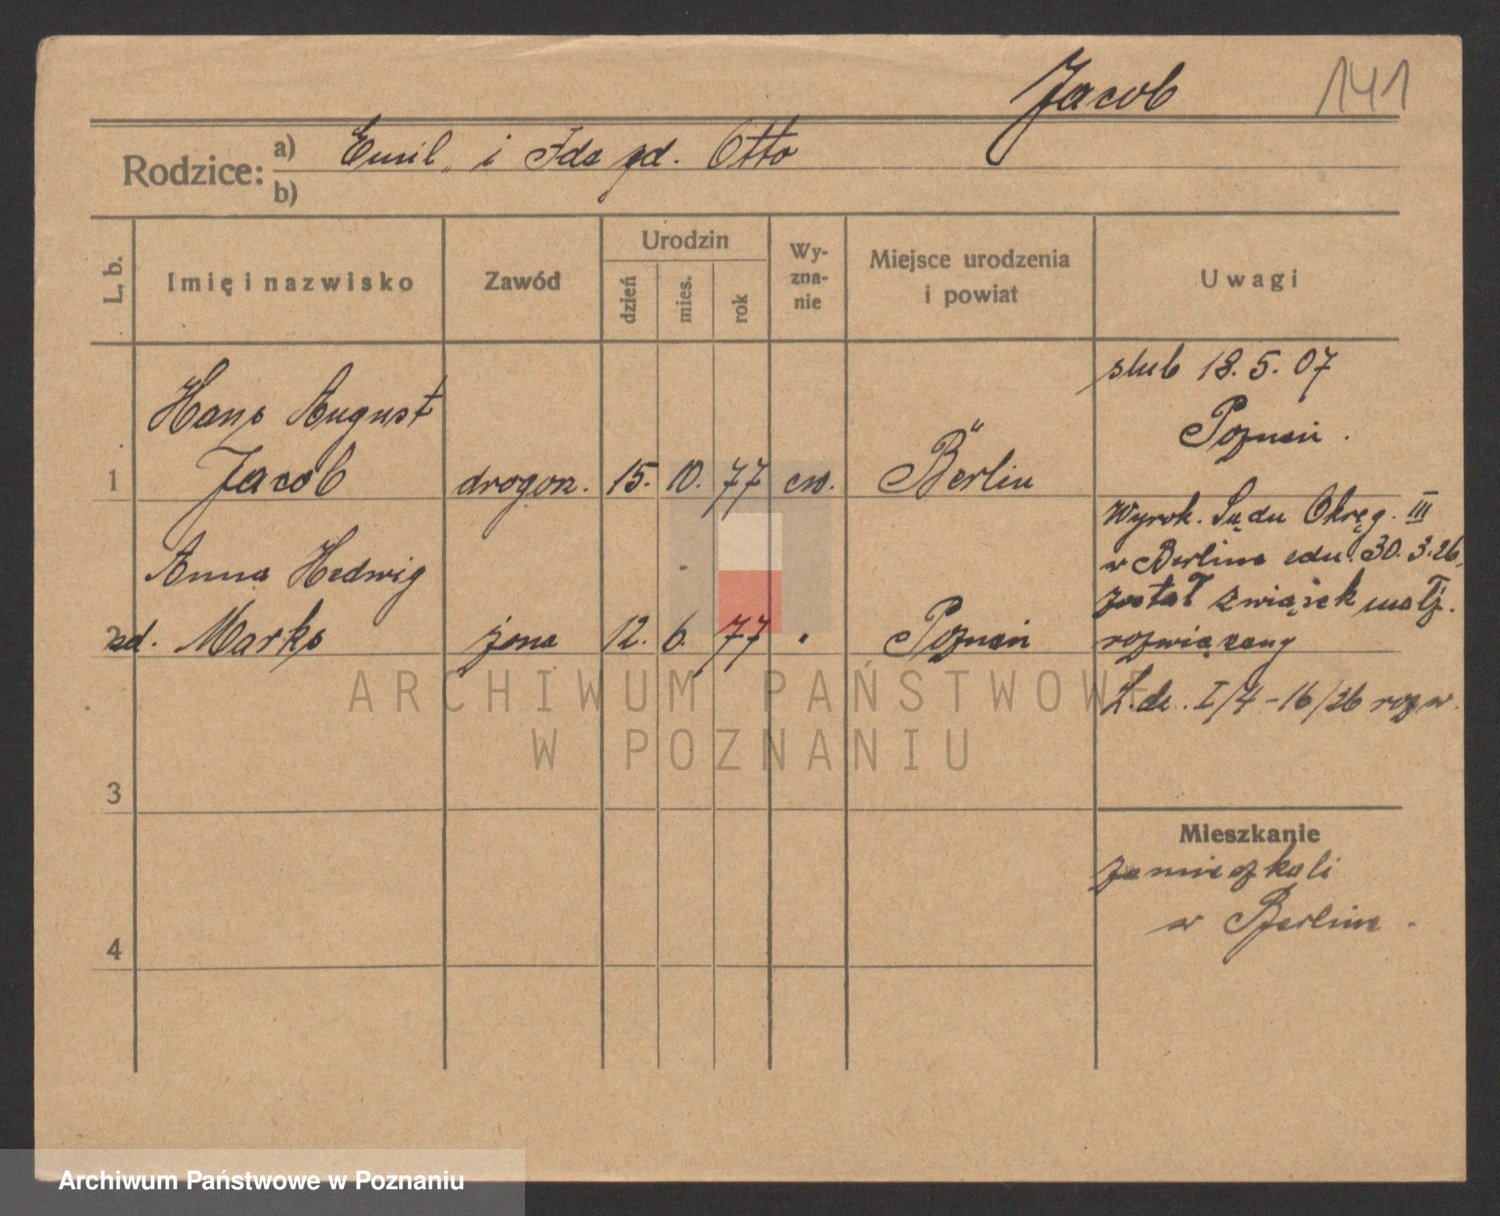 Jacob 141
Rodzice: a) Emil i Ida zd. Otto
b)
L. b. Imię i nazwisko Zawód Urodzin dzień mies. rok Wy-zna-nie Miejsce urodzenia i powiat Uwagi
ślub 18. 5. 07
Hans August Poznań.
1 Jacob drogerz. 15. 10. 77 ew. Berlin
Wyrok. Sądu Okręg. III
w Berlinie z dn. 30. 3. 26,
Anna Hedwig został związek małż.
2 zd. Marks żona 12. 6. 77 " Poznań rozwiązany
L. dz. I/4-16/26 rozw.
3
Mieszkanie
zamieszkali
w Berlinie.
4
ARCHIWUM PAŃSTWOWE
W POZNANIU
Archiwum Państwowe w Poznaniu